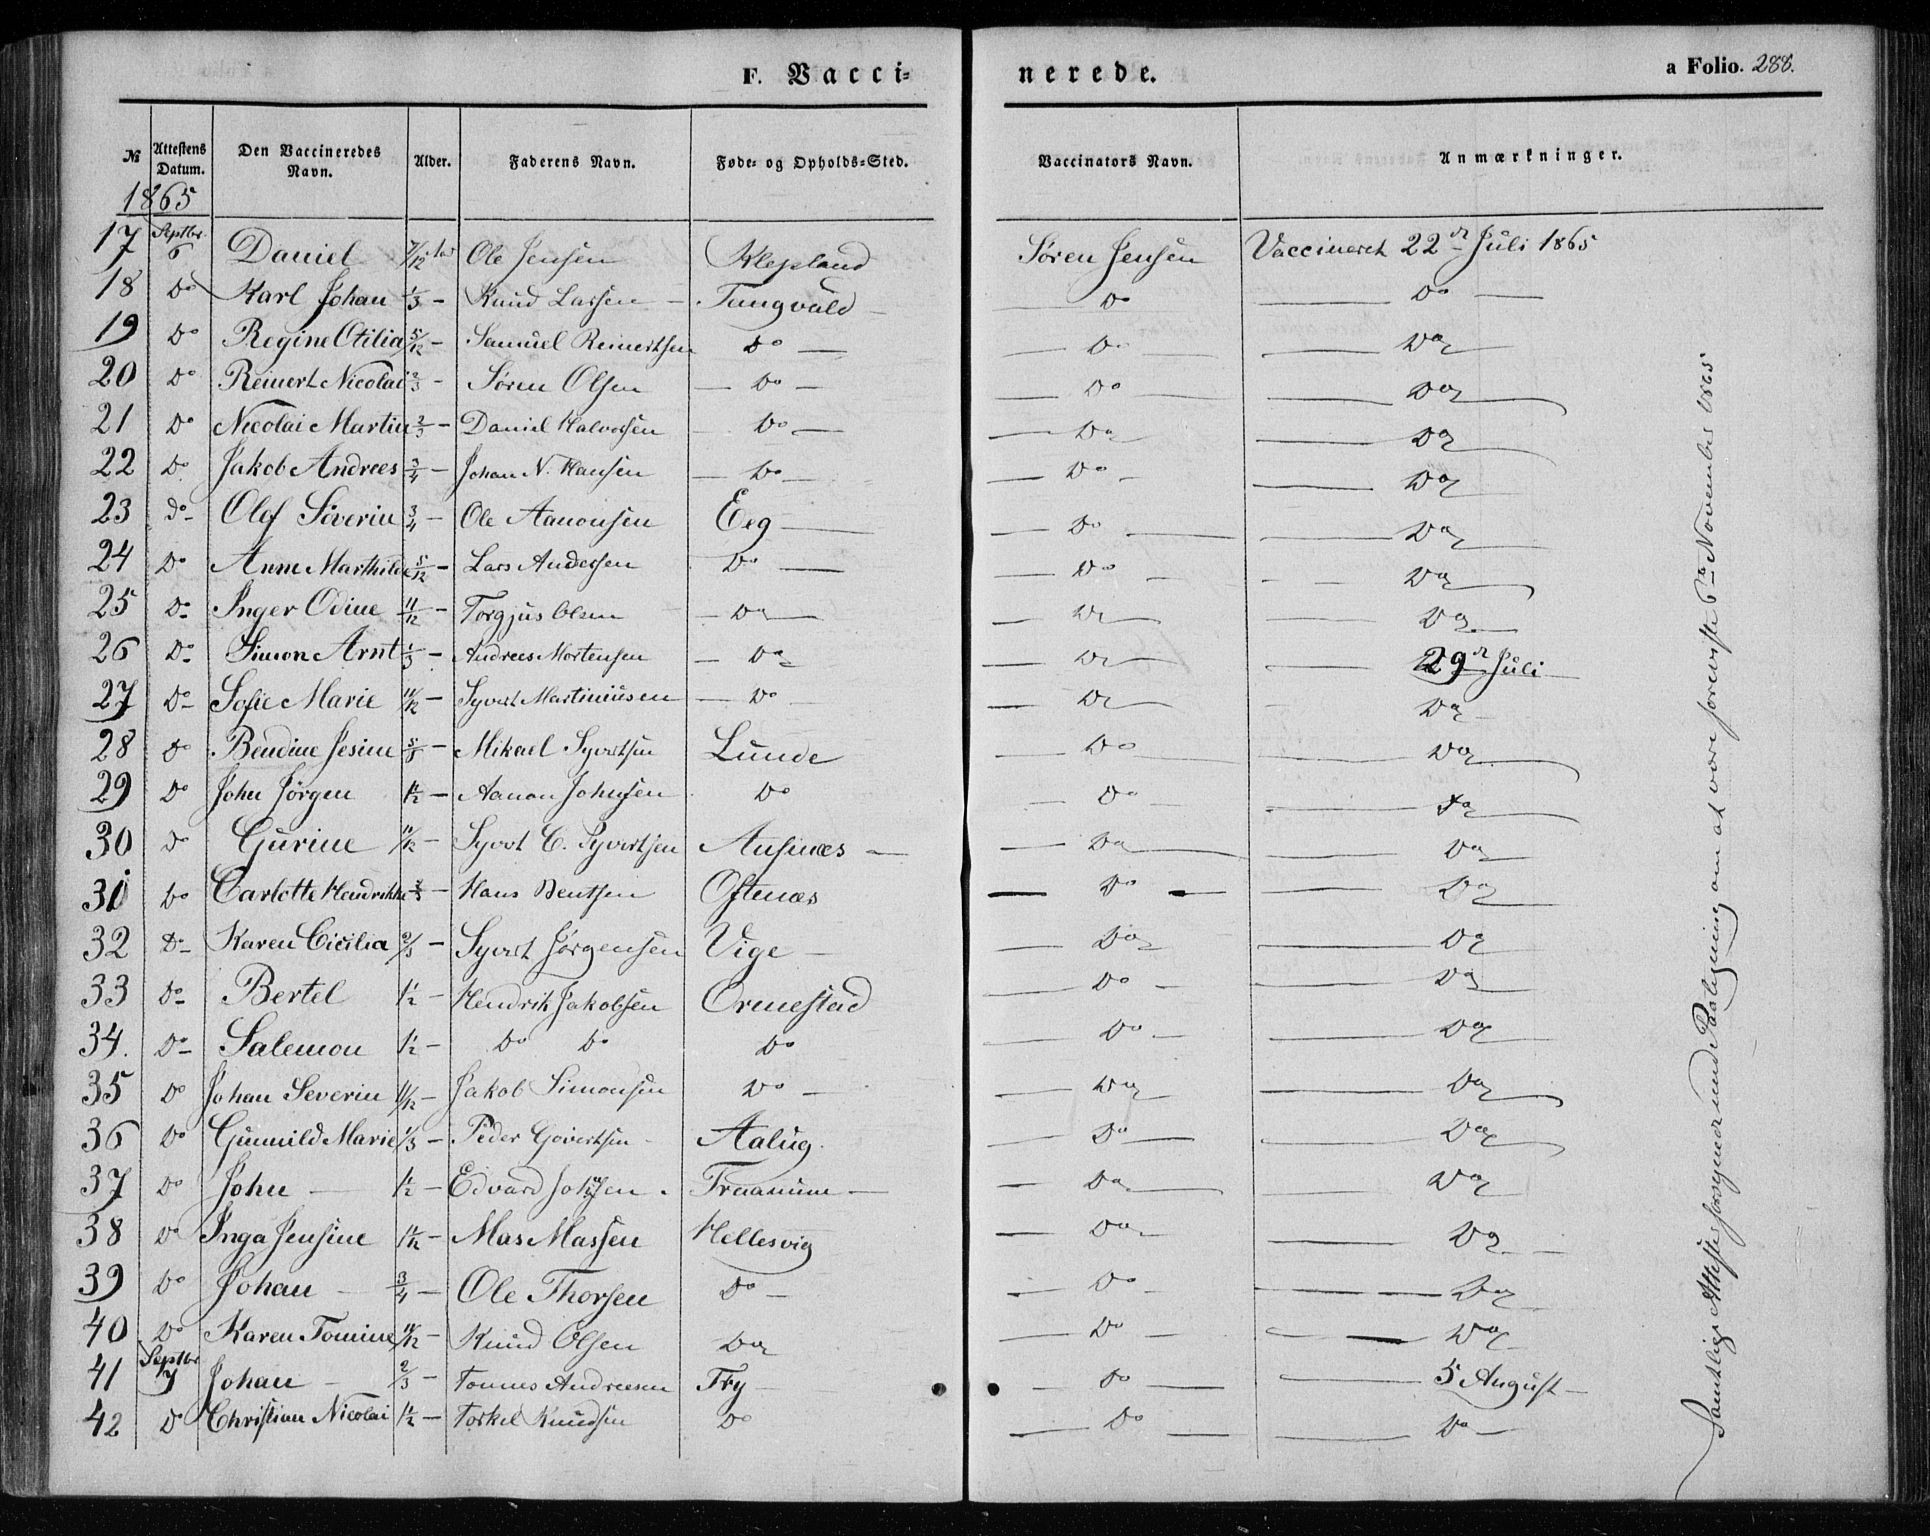 F. Vacci- nerede. a Folio. 288.
№ Attestens Datum. Den Vaccineredes Navn. Alder. Faderens Navn. Føde- og Opholds-Sted. Vaccinators Navn. Anmærkninger.
1865
17 Septbr. 6 Daniel 7/12 Ole Jensen Klepland Søren Jensen Vaccineret 22 Juli 1865
18 Do Karl Johan 1/3 - Knud Larsen - Tangvald - Do Do
19 Do Regine Otilia 5/12 - Samuel Reinertsen Do Do Do
20 Do Reinert Nicolai 2/3 - Søren Olsen Do Do Do
21 Do Nicolai Martin 2/3 - Daniel Halvorsen Do Do Do
22 Do Jakob Andrees 3/4 - Johan N. Hansen Do Do Do
23 do Olef Siverin 3/4 - Ole Aanonsen Eeg Do Do
24 Do Anne Marthilde 5/12 - Lars Andersen Do Do Do
25 Do Inger Odine 11/12 - Torgjus Olsen Do Do Do
26 Do Simon Arnt 1/3 - Andrees Mortensen Do Do 29 Juli
27 Do Sofie Marie 11/12 - Syvert Martiniusen Do Do Do
28 Do Bendine Jesine - Mikael Syvertsen Lunde Do Do
29 Do John Jörgen 1/2 - Aanon Johnsen Do Do Do
30 Do Gurine 11/12 - Syvert C. Syvertsen Ausinæs Do Do
31 Do Carlotte Hendrikke 2/3 - Hans Bentsen Oftenæs Do Do
32 Do Karen Cicilia 2/3 - Syvert Jørgensen Vige Do Do
33 Do Bertel 1/2 - Hendrik Jakobsen Ormestad Do Do
34. Do Salemon 1/2 - Do Do Do Do Do
35 Do Johan Severin 11/12 - Jakob Simonsen Do Do Do
36 Do Gunnild Marie 1/3 - Peder Govertsen Aalug. Do Do
37 Do John 1/2 - Edvard Johnsen Do Do
38 Do Inga Jensine - Mas Massen Hellesvig Do Do
39 Do Johan 3/4 - Ole Thorsen Do Do Do
40 Do Karen Tomine 11/12 - Knud Olsen Do Do Do
41 Septbr 7 Johan 2/3 - Tønnes Andreesen Try Do 5 August
42 Do Christian Nicolai 1/2 - Torkel Knudsen Do Do Do
Samtlige Attester forsynet med Paategning om at være foreviste 6 November 1865